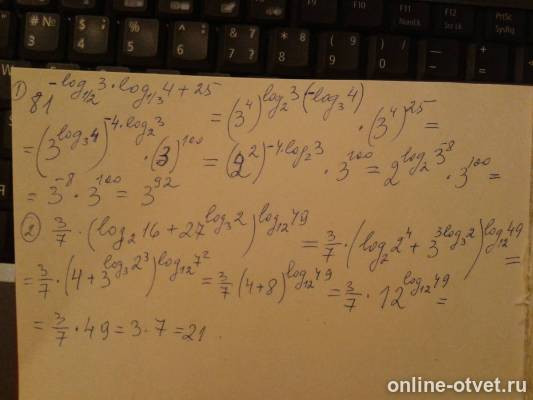 1) 81^(-log_{1/2} 3 · log_{1/3} 4 + 25) = (3^4)^(log_2 3 (-log_3 4)) · (3^4)^25 =
= (3^(log_3 4))^(-4·log_2 3) · (3)^100 = (2^2)^(-4·log_2 3) · 3^100 = 2^(log_2 3^-8) · 3^100 =
= 3^-8 · 3^100 = 3^92
2) 3/7 · (log_2 16 + 27^(log_3 2))^(log_12 49) = 3/7 · (log_2 2^4 + 3^(3log_3 2))^(log_12 49) =
= 3/7 · (4 + 3^(log_3 2^3))^(log_12 7^2) = 3/7 (4+8)^(log_12 49) = 3/7 · 12^(log_12 49) =
= 3/7 · 49 = 3 · 7 = 21
online-otvet.ru